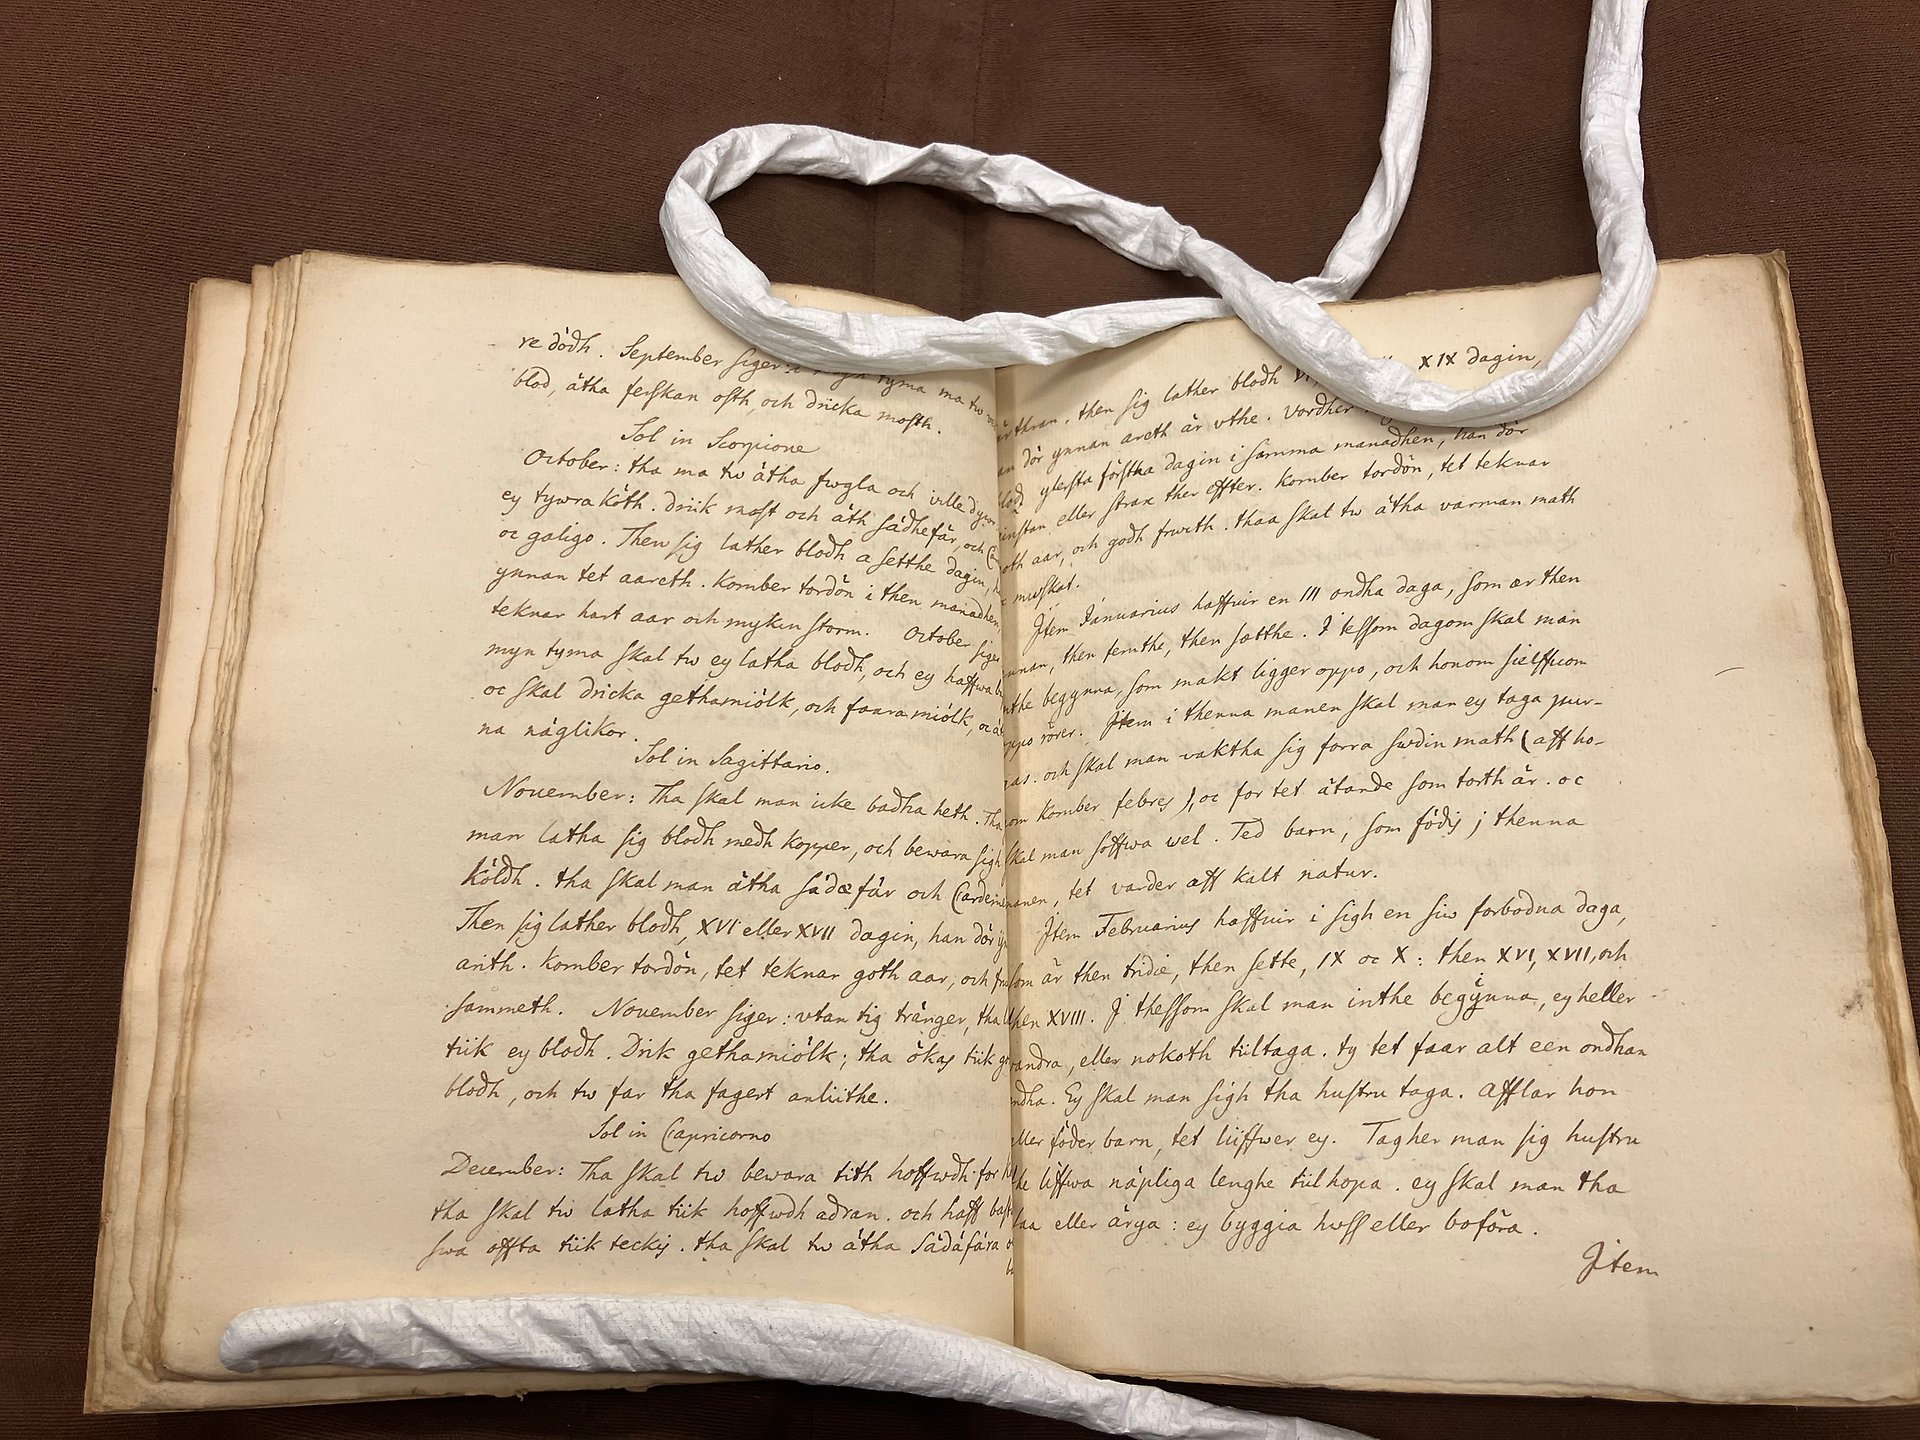 re dödh. September siger: i tyma ma tw
blod, ätha ferskan osth, och dricka mosth.
Sol in Scorpione
October: tha ma tw ätha fwgla och ville dywr
ey tywra köth. Drik most och äth sädhefär, och
oc galigo. Then sig lather blodh a setthe dagin,
ynnan tet aareth. Komber tordön i then manadhen,
teknar hart aar och mykin storm. Octobe siger
myn tyma skal tw ey latha blodh, och ey haffwa
oc skal dricka gethamiölk, och faara miölk,
na näglikor.
Sol in Sagittario.
Nouember: Tha skal man icke badha heth. Tha
man latha sig blodh medh kopper, och bewara sigh
köldh. tha skal man ätha sädæfär och
Then sig lather blodh, XVI eller XVII dagin, han dör
arith. Komber tordön, tet teknar goth aar, och
sammeth. Nouember siger: vtan tig tränger, tha
tiik ey blodh. Drik gethamiölk; tha ökas tiik
blodh, och tw far tha fagert anliithe.
Sol in Capricorno
December: Tha skal tw bewara tith hoffwdh for
tha skal tw latha tiik hoffwdh adran. och haff
swa offta tiik teckis. tha skal tw ätha Sädäfära
XIX dagin,
then sig lather blodh
dör ynnan areth är vthe. Vardher
ytersta förstha dagin i samma manadhen, han dör
eller strax ther effter. Komber tordön, tet teknar
aar, och godh frwcth. thaa skal tw ätha varman math
muskat.
Jtem Januarius haffuir en III ondha daga, som ær then
then femthe, then sætthe. I tessom dagom skal man
begynna, som makt ligger oppo, och honom sielffuom
rörer. Jtem i thenna manen skal man ey taga pur-
och skal man vaktha sig forra swdin math (aff ho-
komber febres), oc for tet ätande som torth är. oc
skal man soffwa wel. Ted barn, som födis j thenna
tet varder aff kalt natur.
Jtem Februarius haffuir i sigh en siw forbodna daga,
som är then tridie, then sette, IX oc X: then XVI, XVII, och
then XVIII. J thessom skal man inthe begynna, ey heller
vandra, eller nokoth tiiltaga. ty tet faar alt een ondhan
Ey skal man sigh tha hustru taga. afflar hon
eller föder barn, tet liiffwer ey. Tagher man sig hustru
liffwa näpliga lenghe tiilhopa. ey skal man tha
eller ärya: ey byggia hwss eller boföra.
Jtem